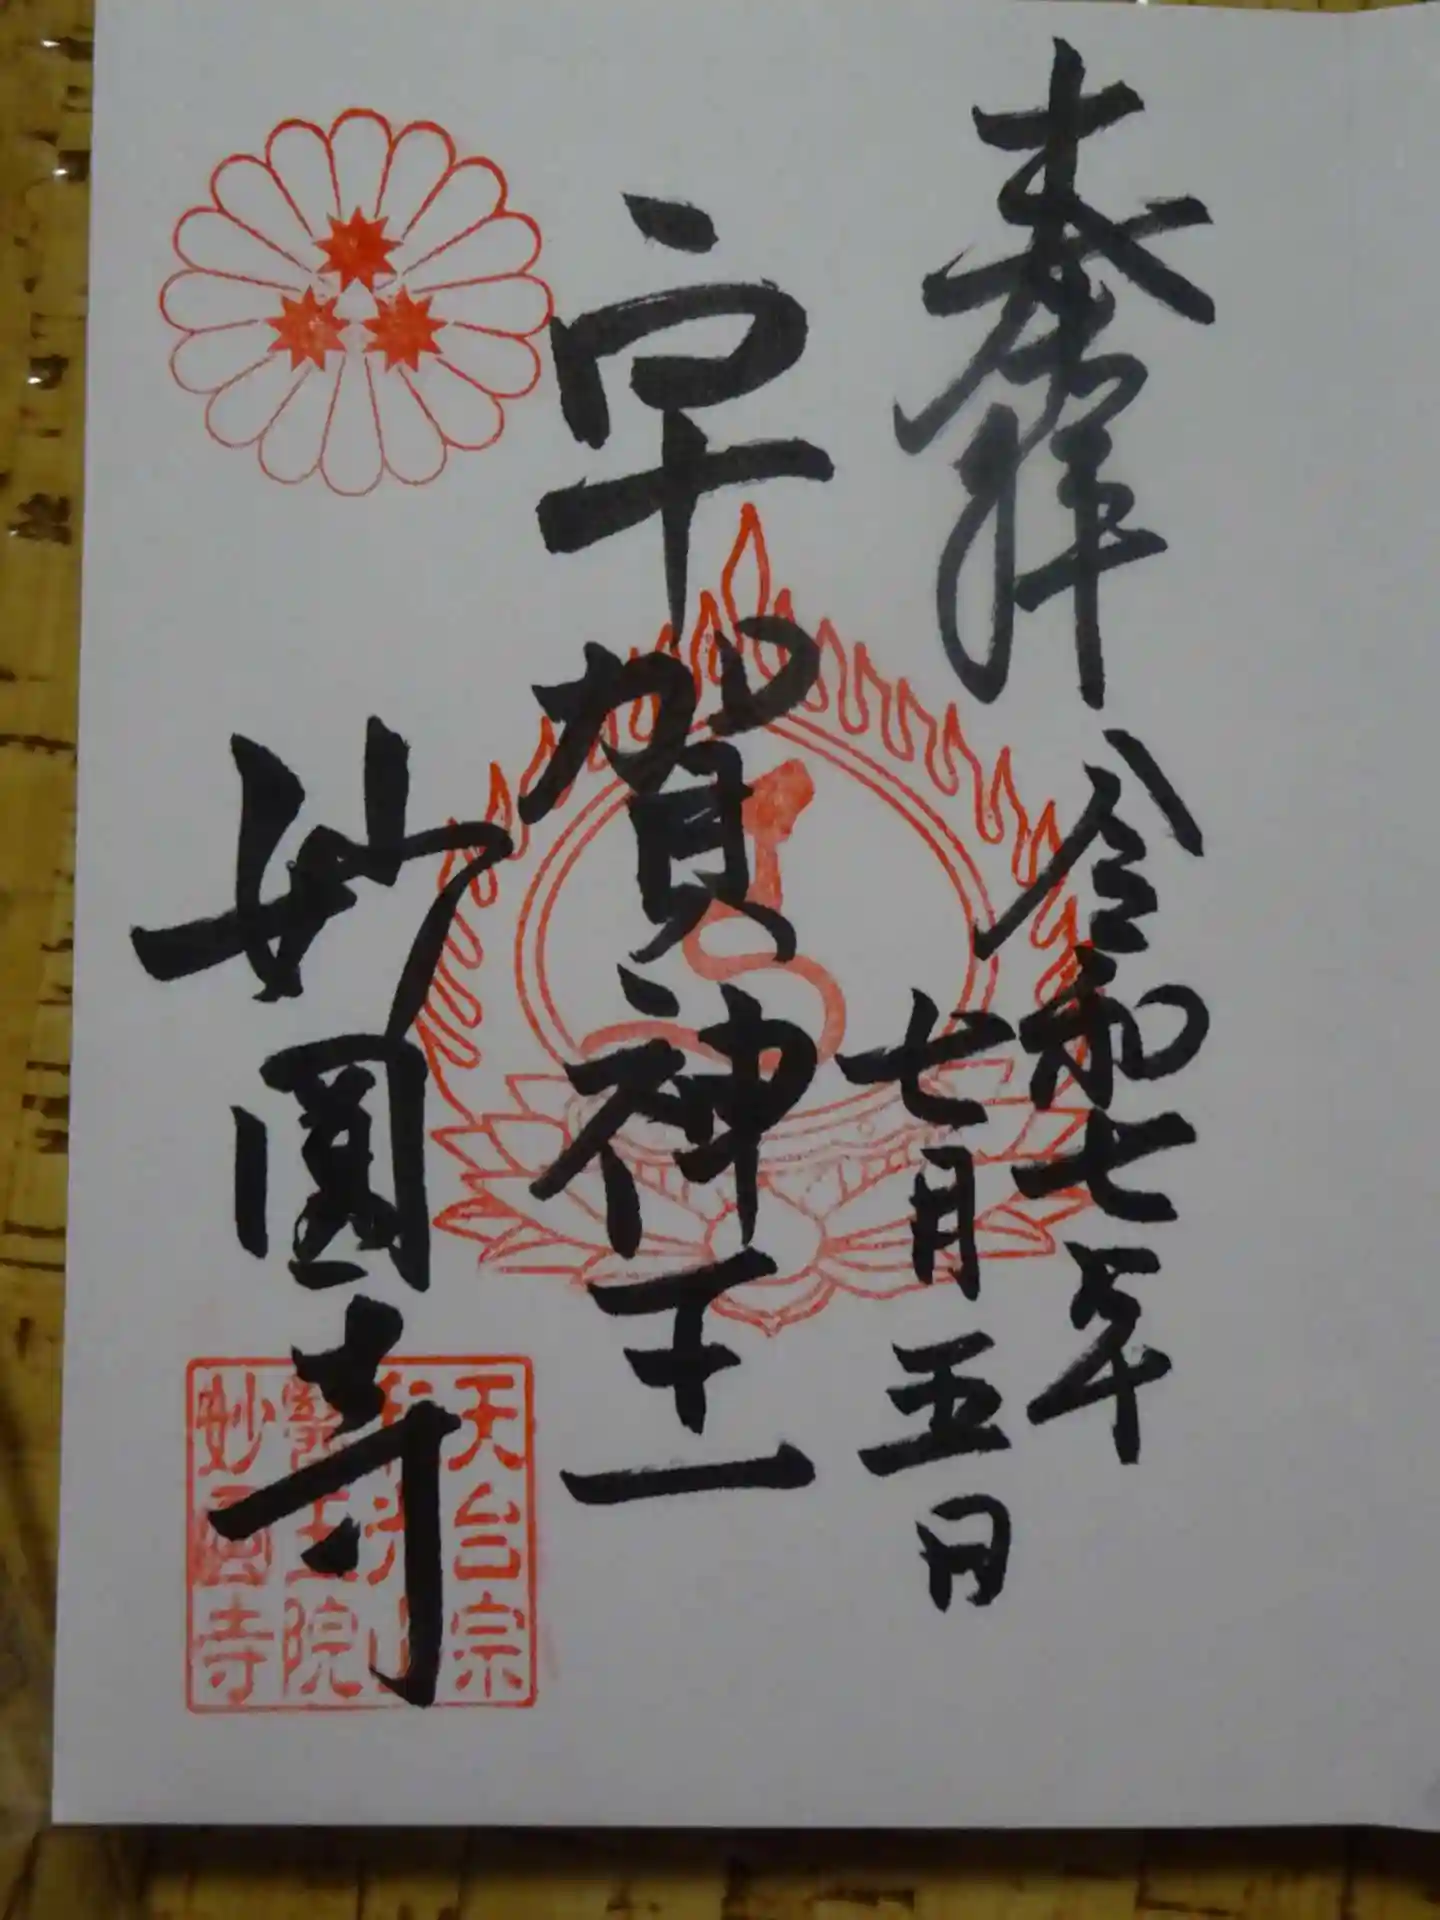 奉拝
令和七年
七月五日
宇賀神王
妙圓寺
天台宗
醫王院
妙圓寺